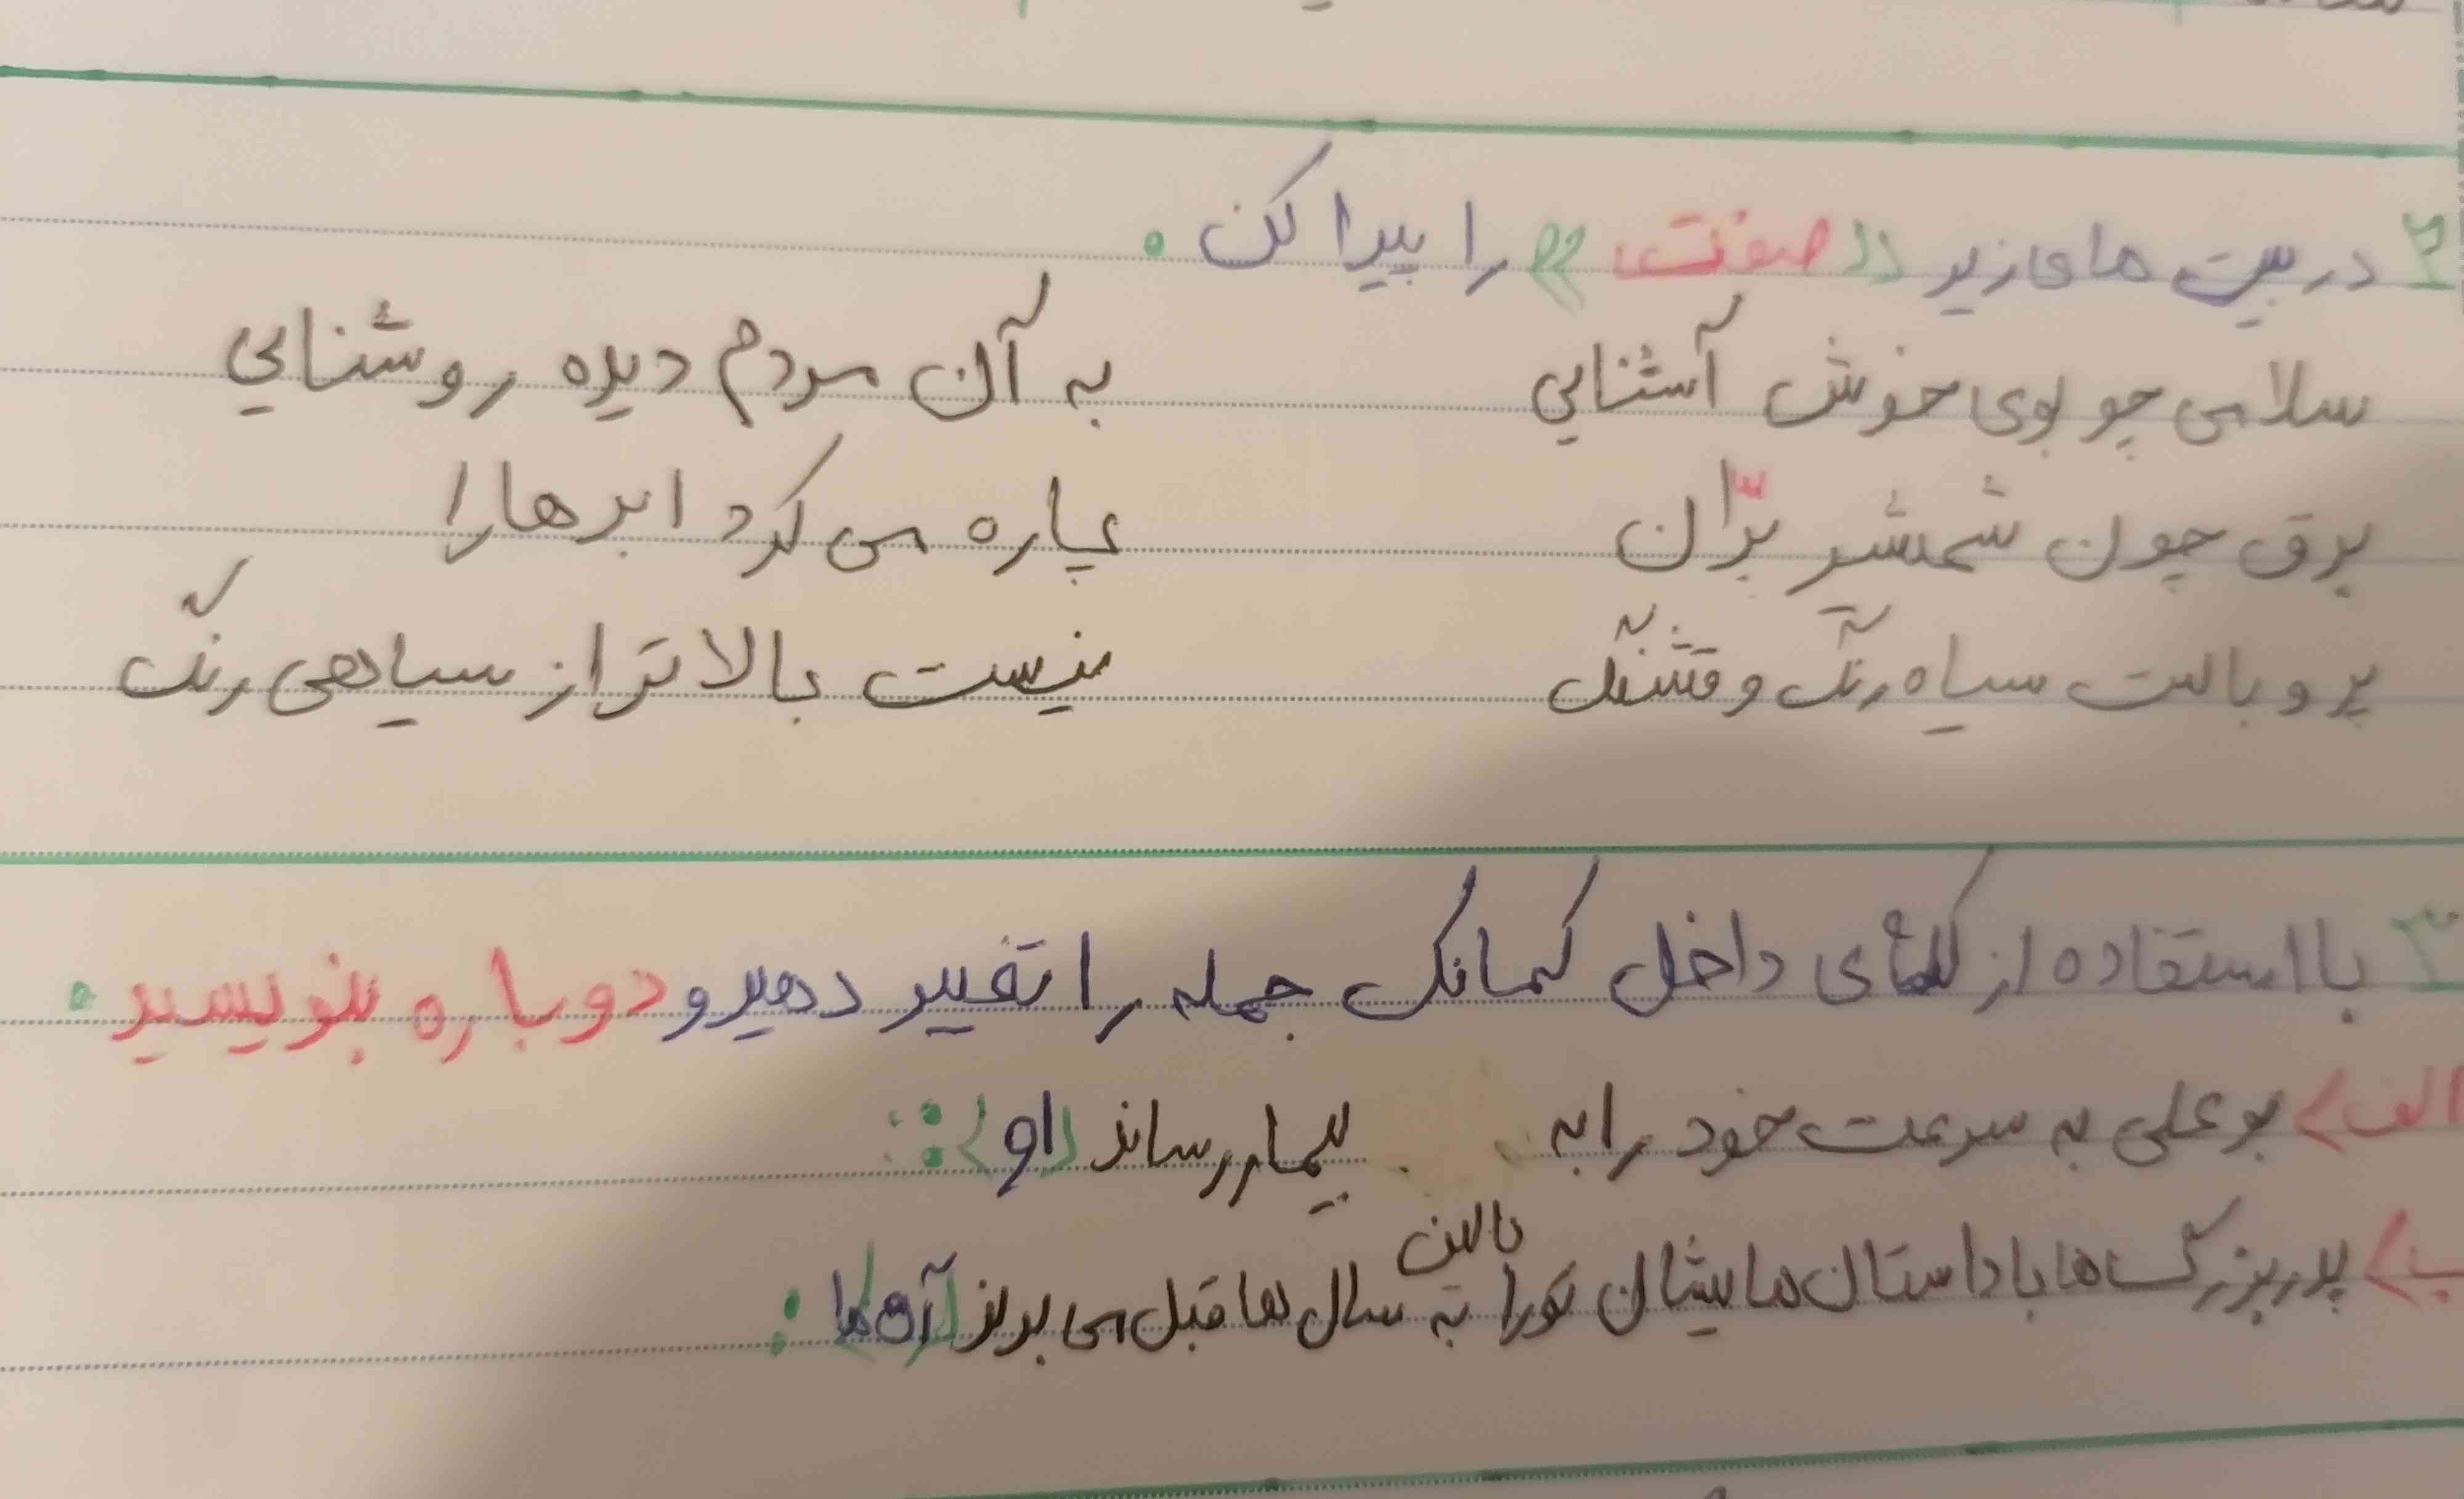 ۲ در بیت های زیر «صفت» را پیدا کن.
سلامی چو بوی خوش آشنایی به آن مردم دیده روشنایی
برق چون شمشیر بّران پاره می کرد ابرها را
پر و بالت سیاه رنگ و قشنگ نیست بالاتر از سیاهی رنگ
۳ با استفاده از کلمه‌ی داخل کمانک جمله را تغییر دهید و دوباره بنویسید.
الف) بوعلی به سرعت خود را به بیمار رساند (او):
بالین
ب) پدربزرگ ها با داستان هایشان تو را به سال ها قبل می برند (آن ها):